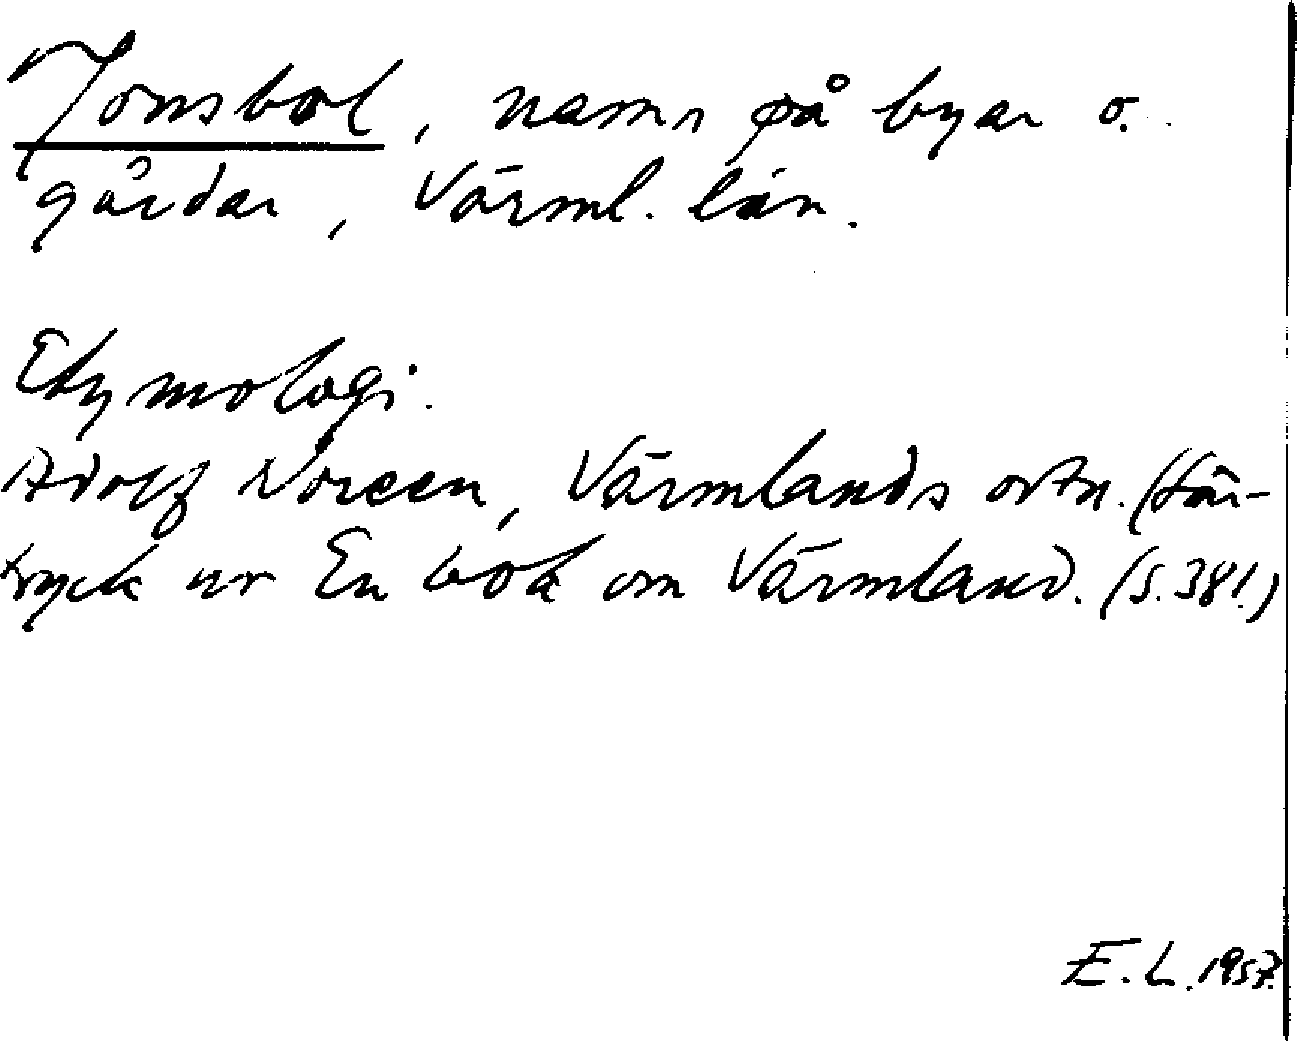 Jonsbol, namn på byar o.
gårdar, Värml. län.
Etymologi.
Adolf Noreen, Värmlands ortn. (Sär-
tryck ur En bok om Värmland. (S. 381.)
E. L. 1957.